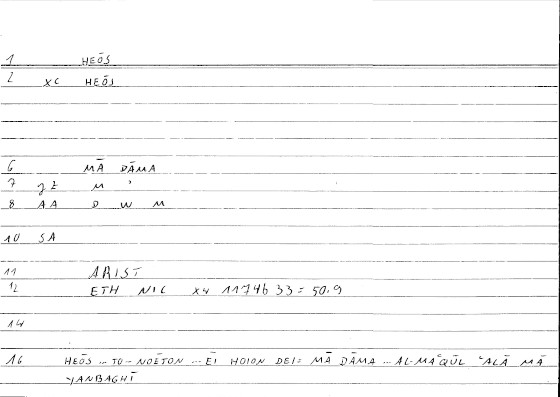 1 HEŌS
2 XC HEŌS
6 MĀ DĀMA
7 YZ M ʾ
8 AA D W M
10 SA
11 ARIST
12 ETH NIC X4 1174b 33 = 50.9
14
16 HEŌS ... TO-NOĒTON ... ĒI HOION DEI = MĀ DĀMA ... AL-MAʿQŪL ʿALĀ MĀ
YANBAGHĪ